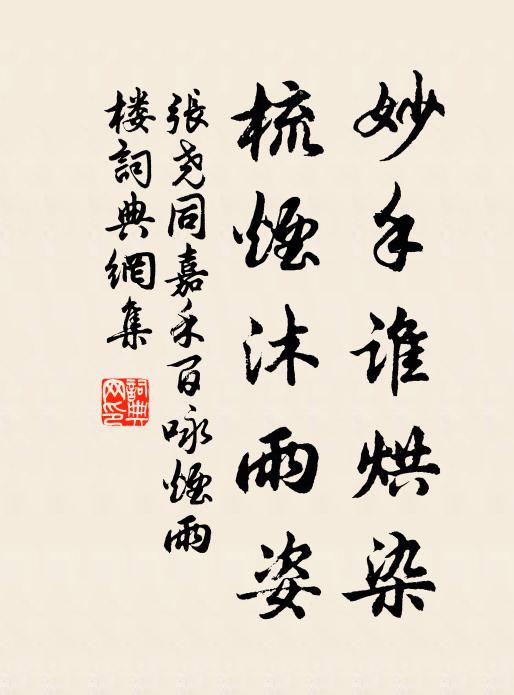 妙手誰烘染
梳煙沐雨姿
張堯同嘉禾百咏煙雨
楼詞典網集
詞典
网印